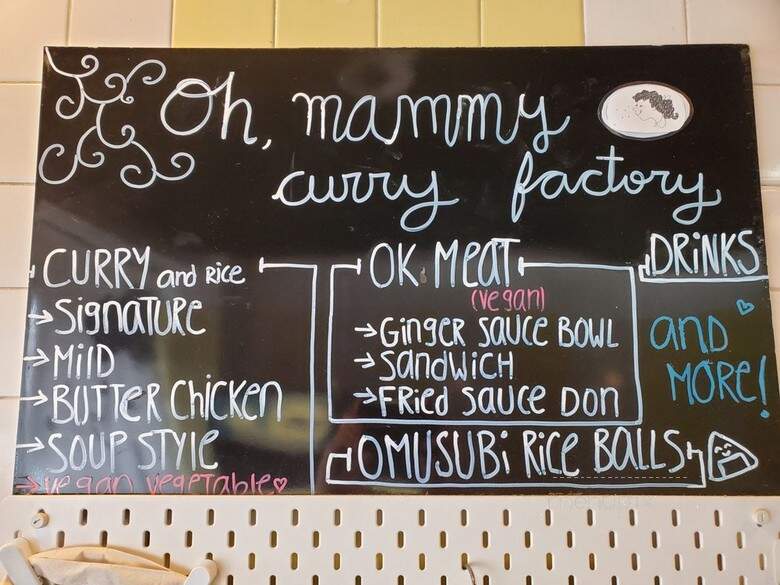 Oh, mammy
curry factory
CURRY and Rice
→Signature
→Mild
→BUTTER Chicken
→SOUP STYLE
→vegan vegetable♡
OK MeaT
(vegan)
→Ginger Sauce Bowl
→Sandwich
→Fried Sauce Don
OMUSUBi Rice BALLS
DRiNKS
and
MORe!